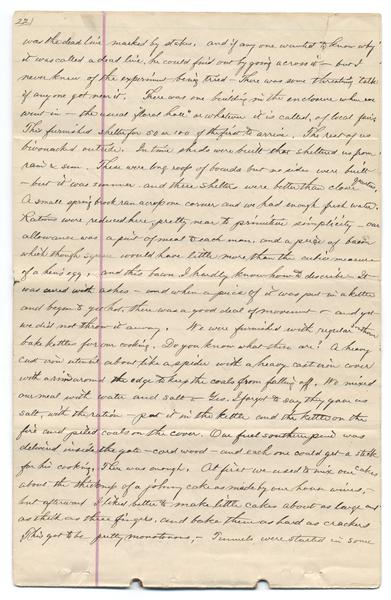 22)
was the dead line marked by stakes, and if any one wanted to know why
it was called a dead line, he could find out by going across it — but I
never knew of the experiment being tried — There was some shooting talk
if any one got near it. There was one building in the enclosure when we
went in — the usual floral hall or whatever it is called, of local fairs
This furnished shelter for 50 or 100 of the first to arrive. The rest of us
bivouacked outside. In time sheds were built that sheltered us from
rain & sun. These were long roofs of boards but no sides were built
— but it was summer and these shelters were better than close quarters,
A small spring brook ran across one corner and we had enough fresh water.
Rations were reduced here pretty near to primitive simplicity — our
allowance was a pint of meal to each man, and a piece of bacon
which though square would have little more than the entire measure
of a hen's egg, and this bacon I hardly know how to describe — It
was cured with ashes — and when a piece of it was put in a kettle
and began to get hot, there was a good deal of movement — and yet
we did not throw it away. We were furnished with regular
bake kettles for our cooking. Do you know what they are? A heavy
cast iron utensil about like a spider with a heavy cast iron cover
with a rim around the edge to keep the coals from falling off. We mixed
our meal with water and salt — Yes, I forgot to say they gave us
salt, with the ration — put it in the kettle and the kettle on the
fire and piled coals on the cover. Our fuel southern pine was
delivered inside the gate — cord wood — and each one could get a stick
for his cooking. This was enough. At first we used to mix our cakes
about the thickness of a johnny cake as made by our house wives, —
but afterward I liked better to make little cakes about as large and
as thick as three fingers, and bake them as hard as crackers
This got to be pretty monotonous, — Tunnels were started in some